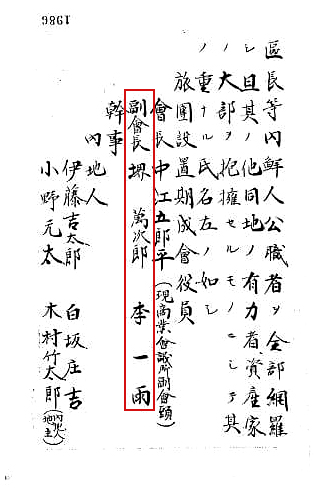 1986
區長等內鮮人公職者ヲ全部網羅
シ且其ノ他同地ノ有力者資產家
ノ大部ヲ抱擁セルモノニシテ其
ノ重ナル氏名左ノ如シ
旅團設置期成會役員
會長 中江五郎平(現商業會議所副會頭)
副會長 堺 萬次郎 李一雨
幹事
內地人
伊藤吉太郎 白坂庄吉
小野元太 木村竹太郎